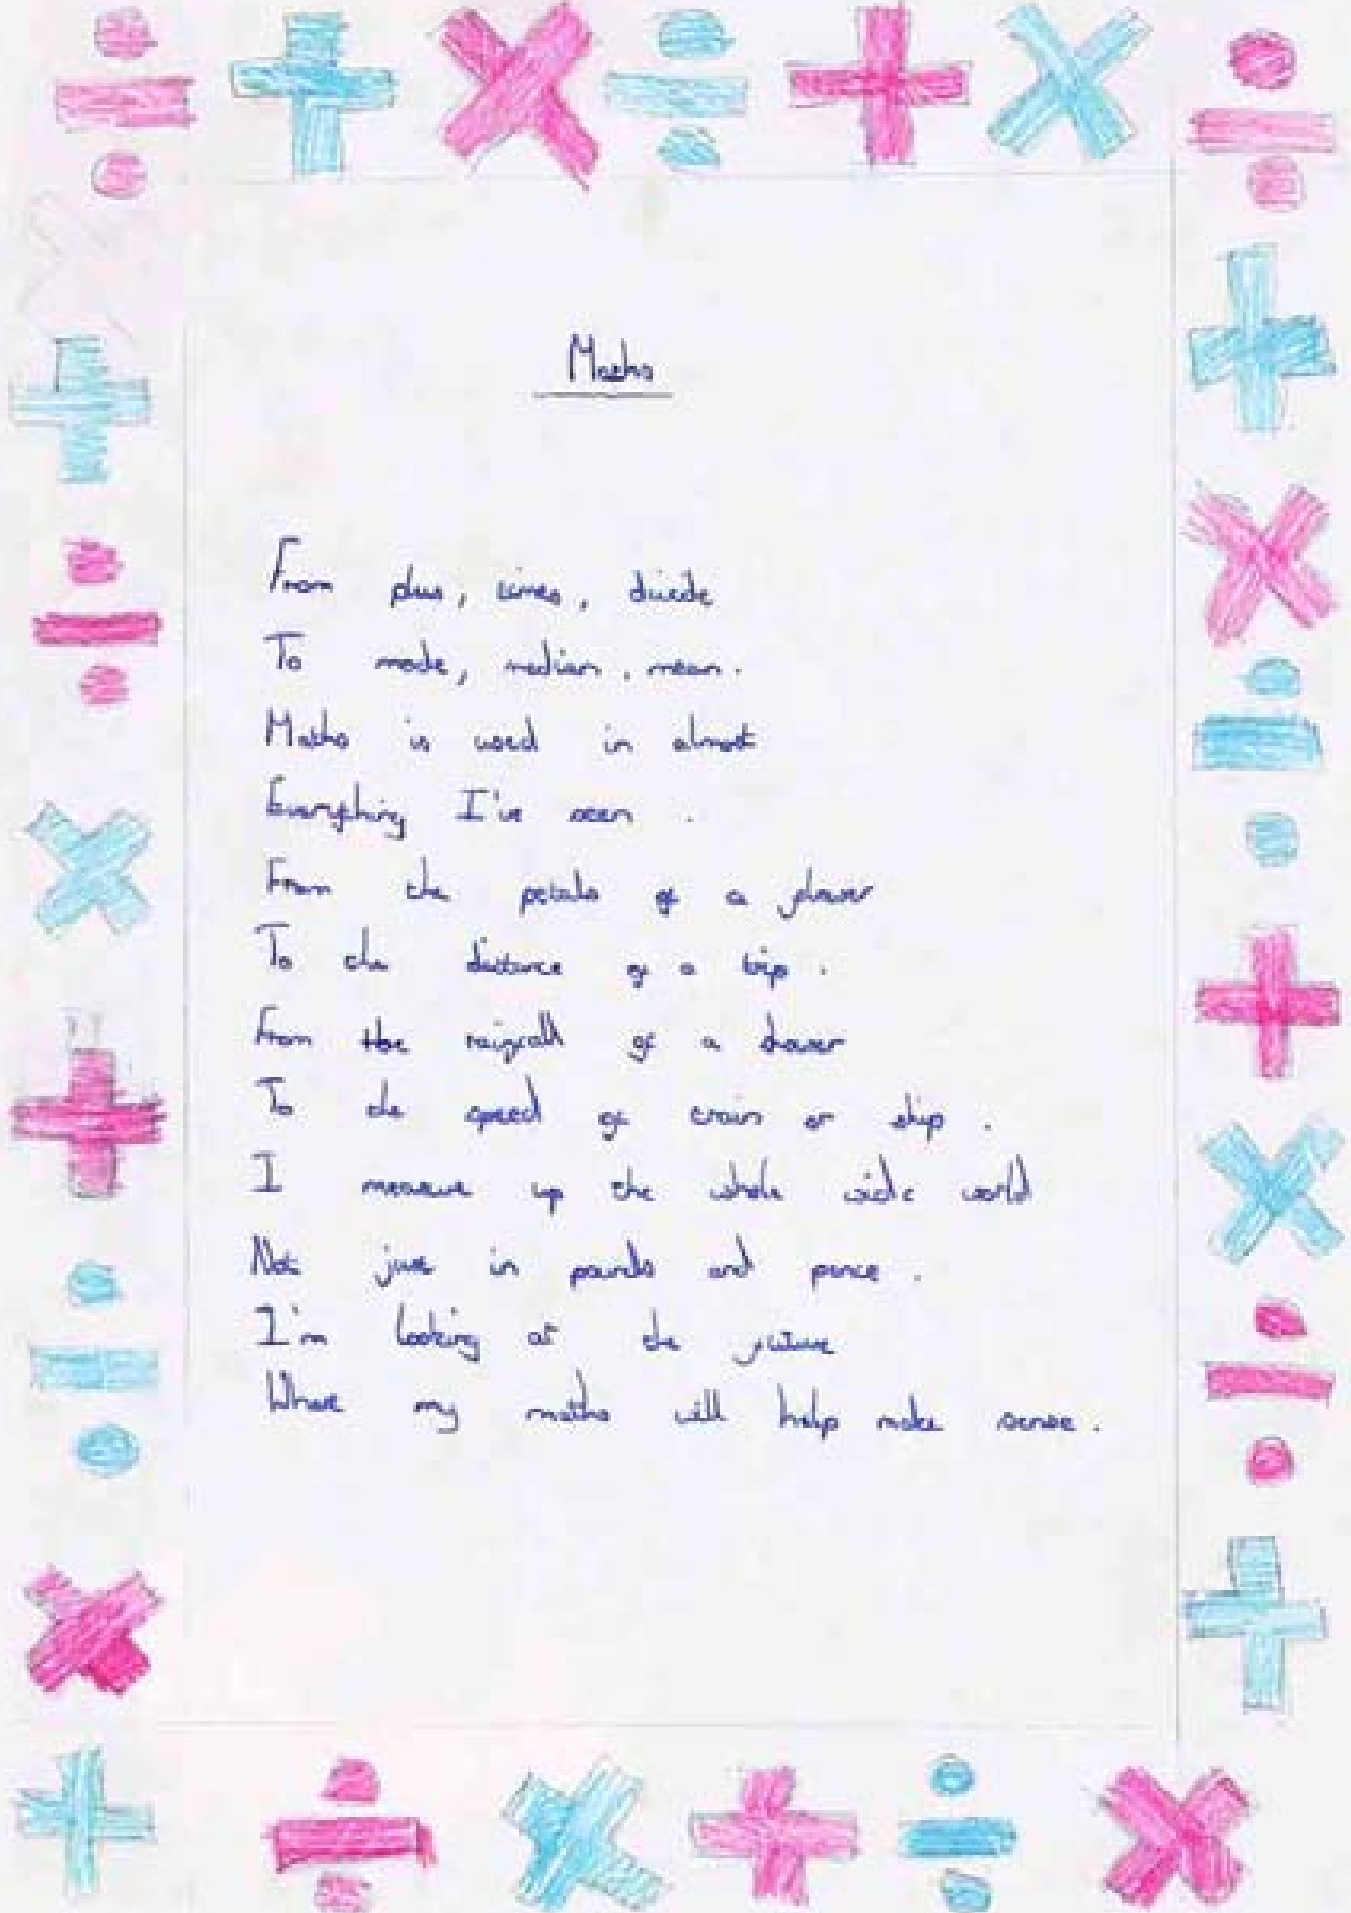 Maths
From plus, times, divide
To mode, median, mean.
Maths is used in almost
Everything I've seen.
From the petals of a flower
To the distance of a trip.
From the raigfall of a shower
To the speed of train or ship.
I measure up the whole wide world
Not just in pounds and pence.
I'm looking at the future
Where my maths will help make sense.